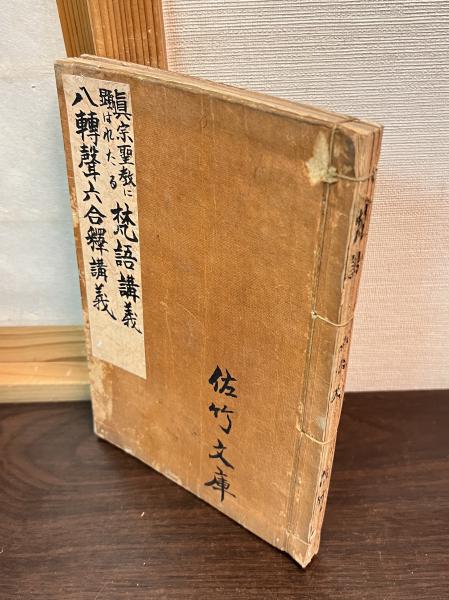 眞宗聖教に
顕はれたる
梵語講義
八轉聲六合釋講義
佐竹文庫